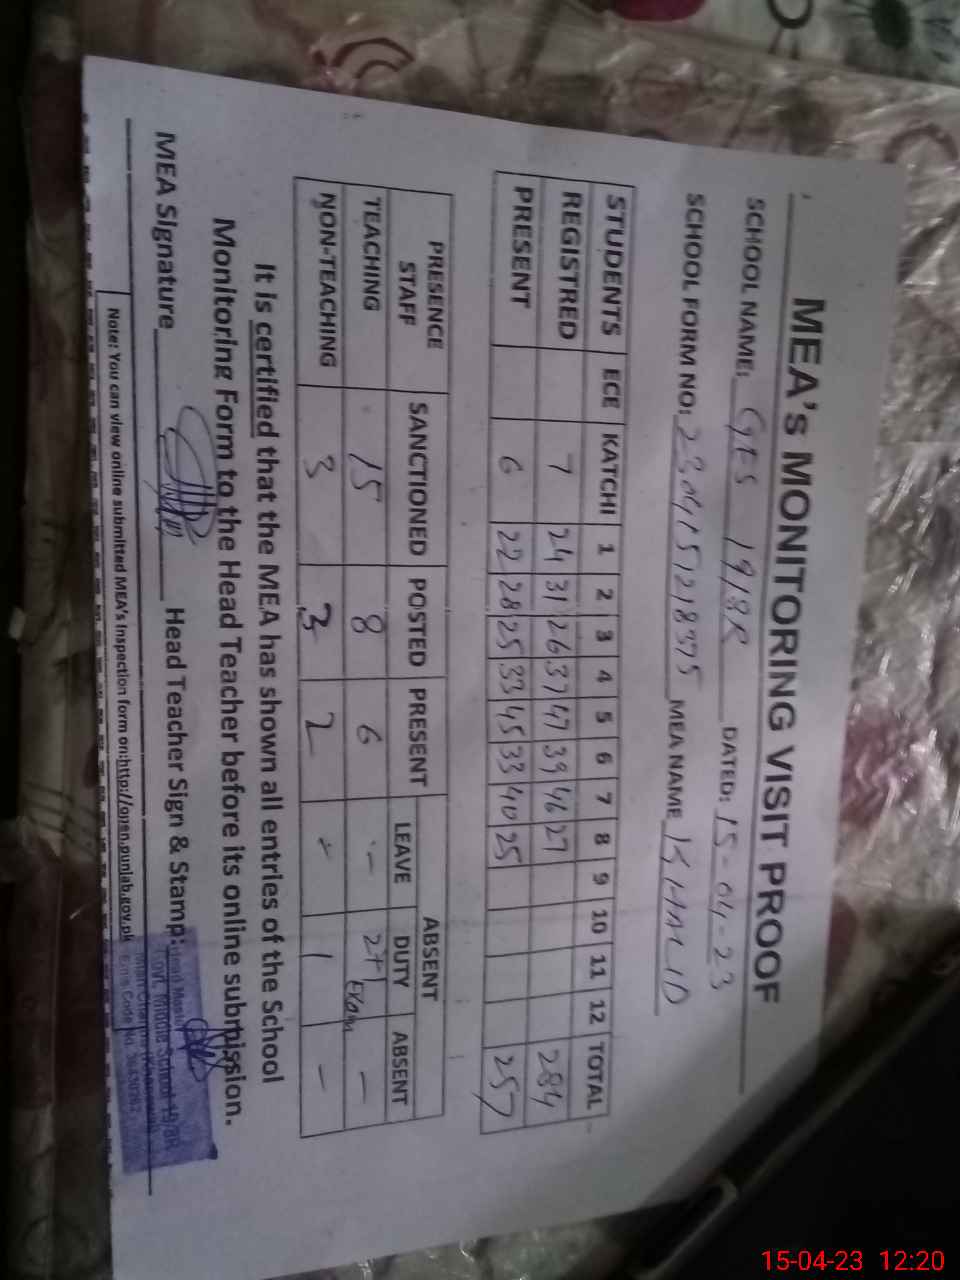 MEA's MONITORING VISIT PROOF
SCHOOL NAME: GES 19/8R DATED: 15-04-23
SCHOOL FORM NO: MEA NAME KHALID
STUDENTS ECE KATCHI 1 2 3 4 5 6 7 8 9 10 11 12 TOTAL
REGISTRED 7 24 31 26 37 47 39 46 27 284
PRESENT 6 22 28 25 33 45 33 40 25 257
PRESENCE STAFF SANCTIONED POSTED PRESENT ABSENT
LEAVE DUTY ABSENT
TEACHING 15 8 6 - 2+1 Exam -
NON-TEACHING 3 3 2 - 1 -
It is certified that the MEA has shown all entries of the School
Monitoring Form to the Head Teacher before its online submission.
MEA Signature Head Teacher Sign & Stamp:
Govt. Middle School 19/8R
Note: You can view online submitted MEA's Inspection form on:http://open.punjab.gov.pk
15-04-23 12:20